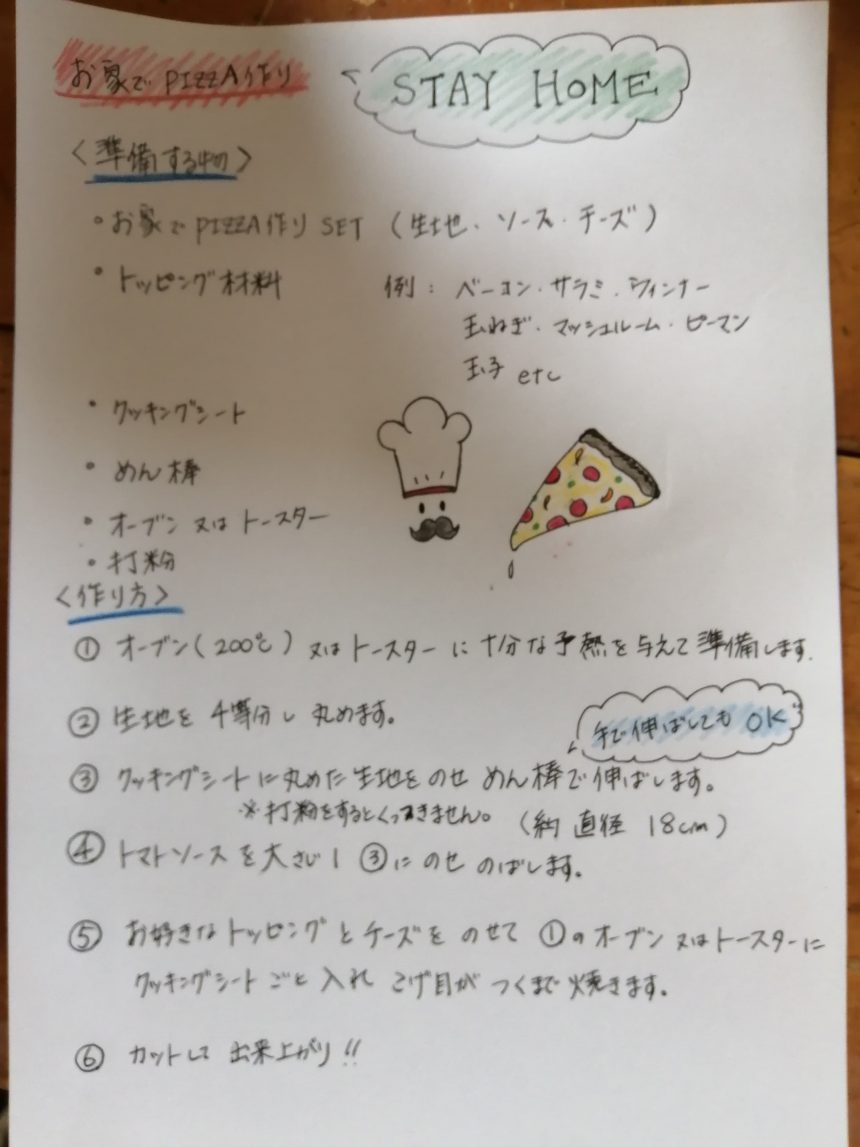 お家で PIZZA作り
STAY HOME
〈準備する物〉
・お家で PIZZA作り SET (生地・ソース・チーズ)
・トッピング材料 例: ベーコン・サラミ・ウィンナー
玉ねぎ・マッシュルーム・ピーマン
玉子 etc
・クッキングシート
・めん棒
・オーブン 又は トースター
・打粉
〈作り方〉
① オーブン(200℃) 又はトースターに十分な予熱を与えて準備します.
② 生地を 4等分し 丸めます。
手で伸ばしても OK
③ クッキングシートに丸めた生地をのせ めん棒で伸ばします。
※打粉をするとくっつきません。 (約 直径 18cm)
④ トマトソースを大さじ1 ③にのせ のばします。
⑤ お好きなトッピングとチーズを のせて ①のオーブン又はトースターに
クッキングシートごと入れ こげ目が つくまで焼きます。
⑥ カットして 出来上がり!!